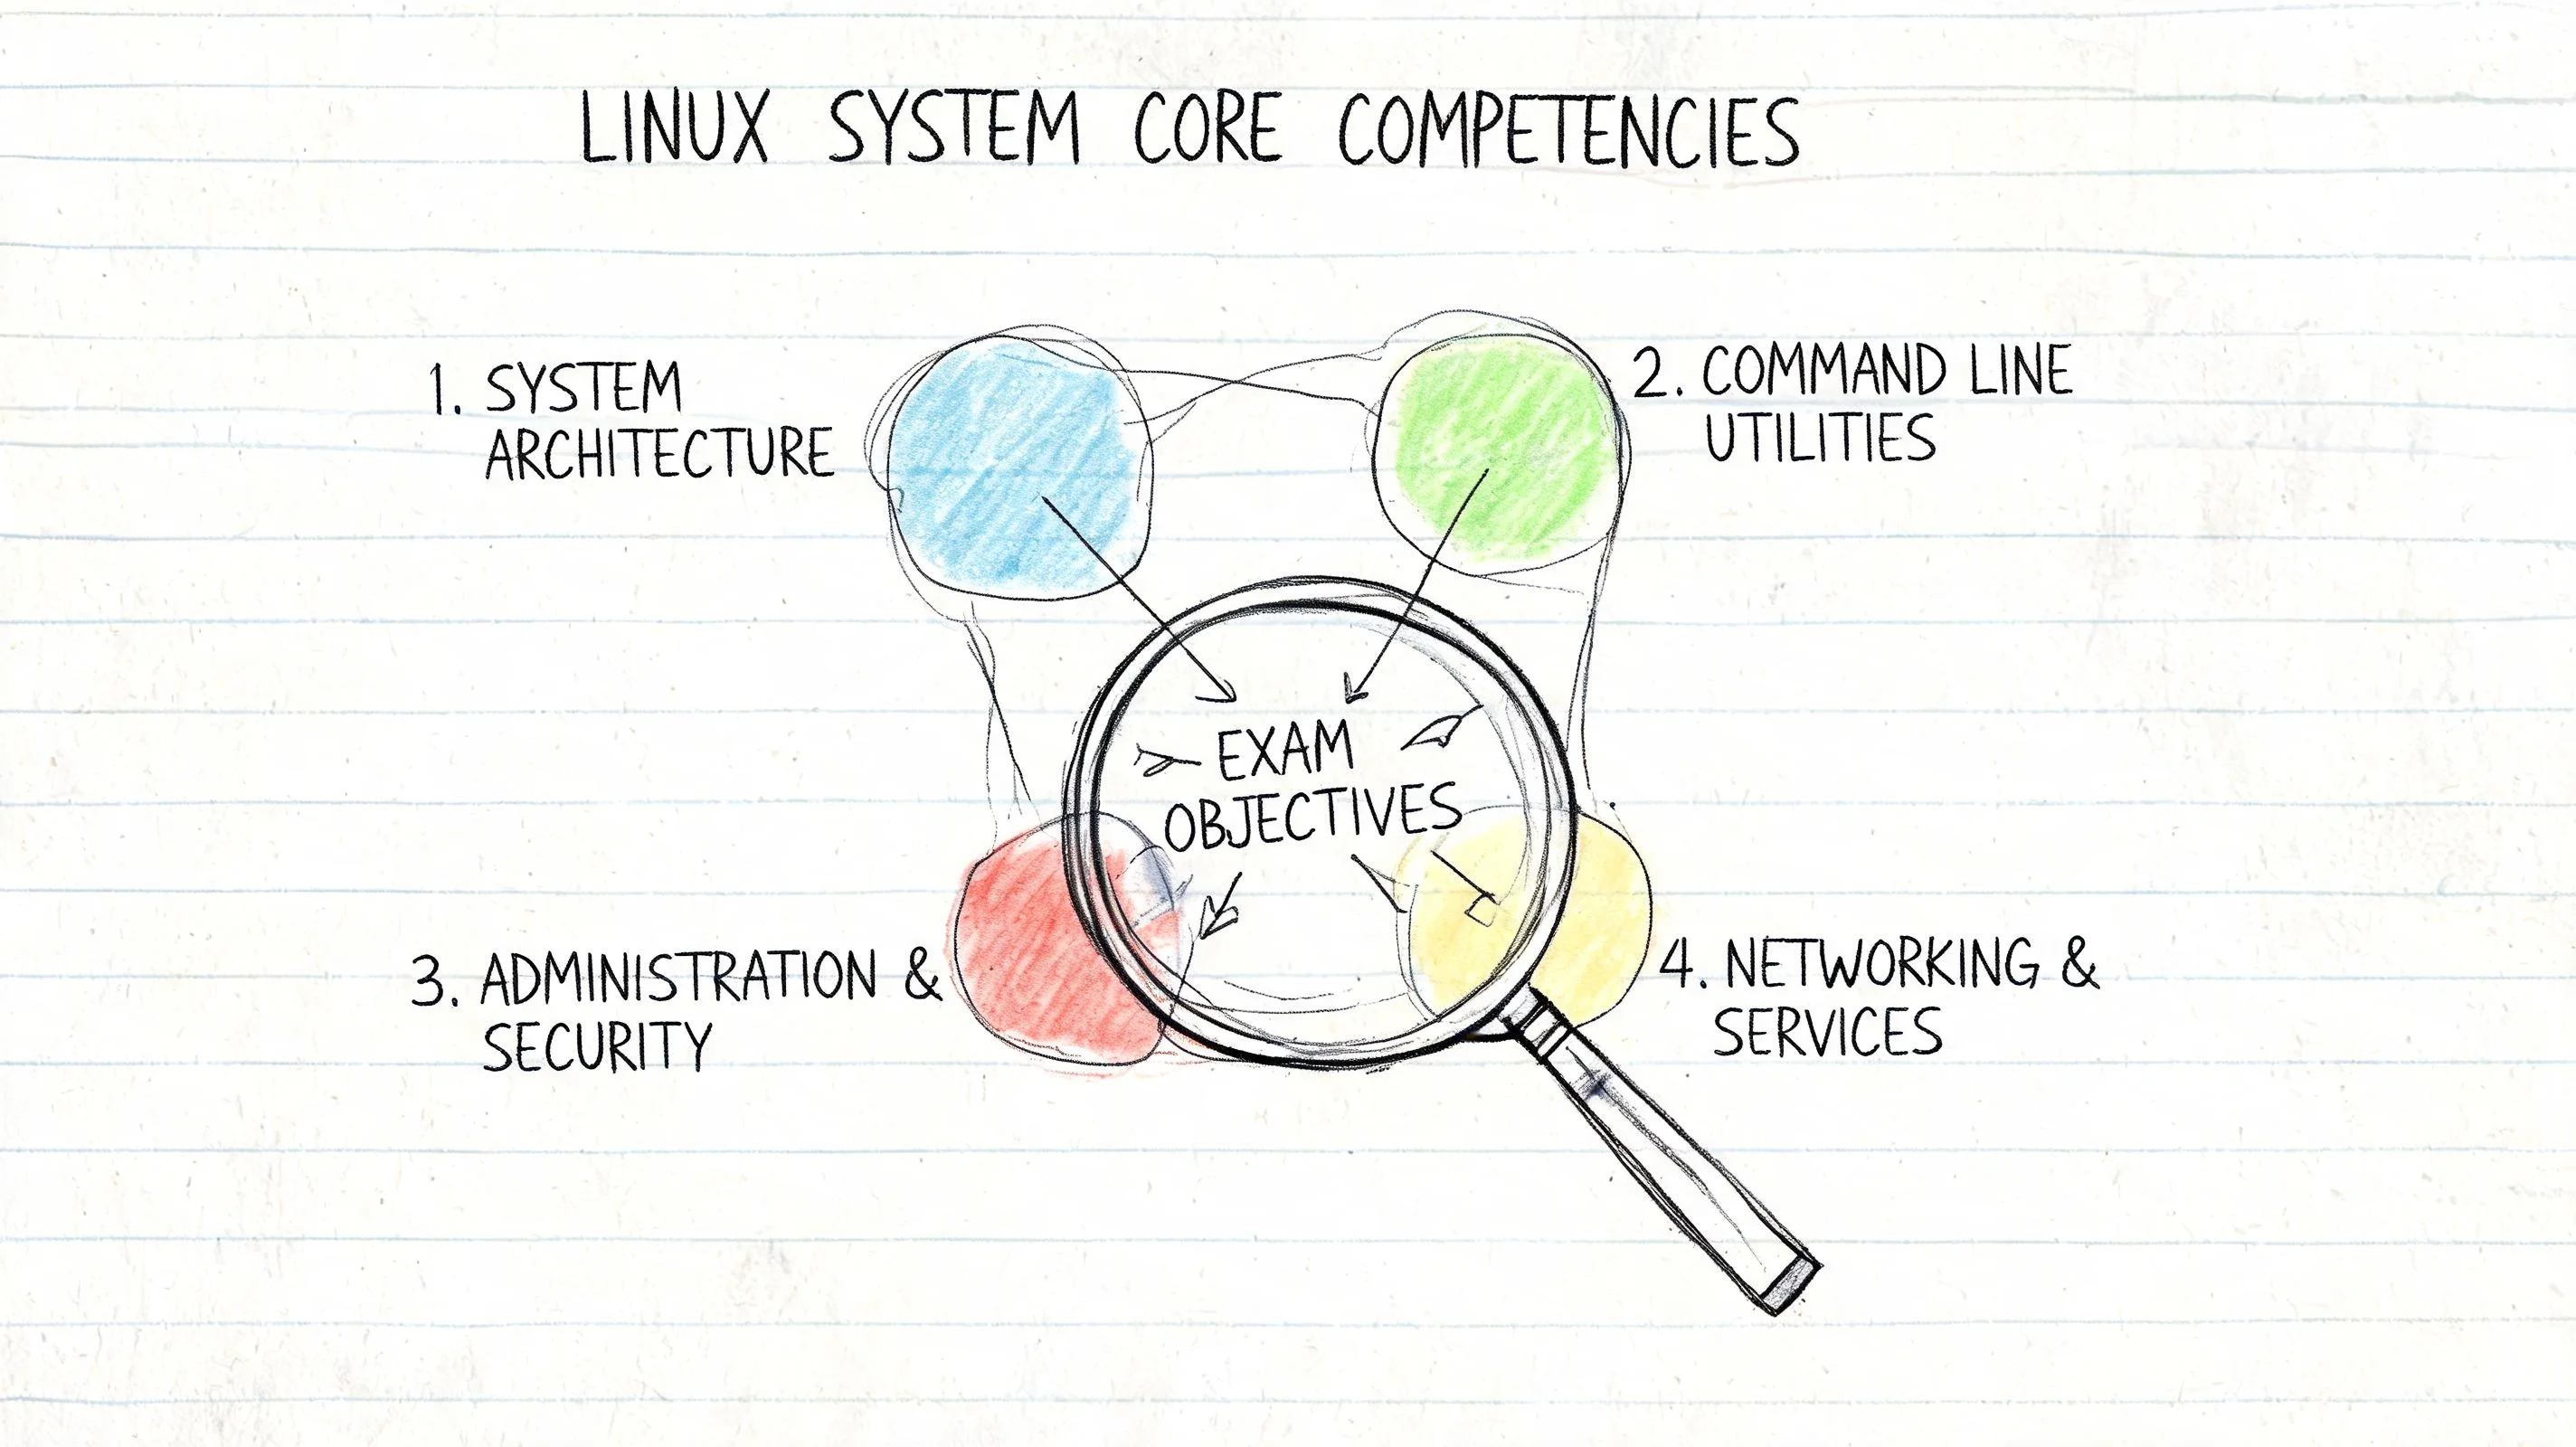 LINUX SYSTEM CORE COMPETENCIES
1. SYSTEM
ARCHITECTURE
2. COMMAND LINE
UTILITIES
EXAM
OBJECTIVES
3. ADMINISTRATION &
SECURITY
4. NETWORKING &
SERVICES